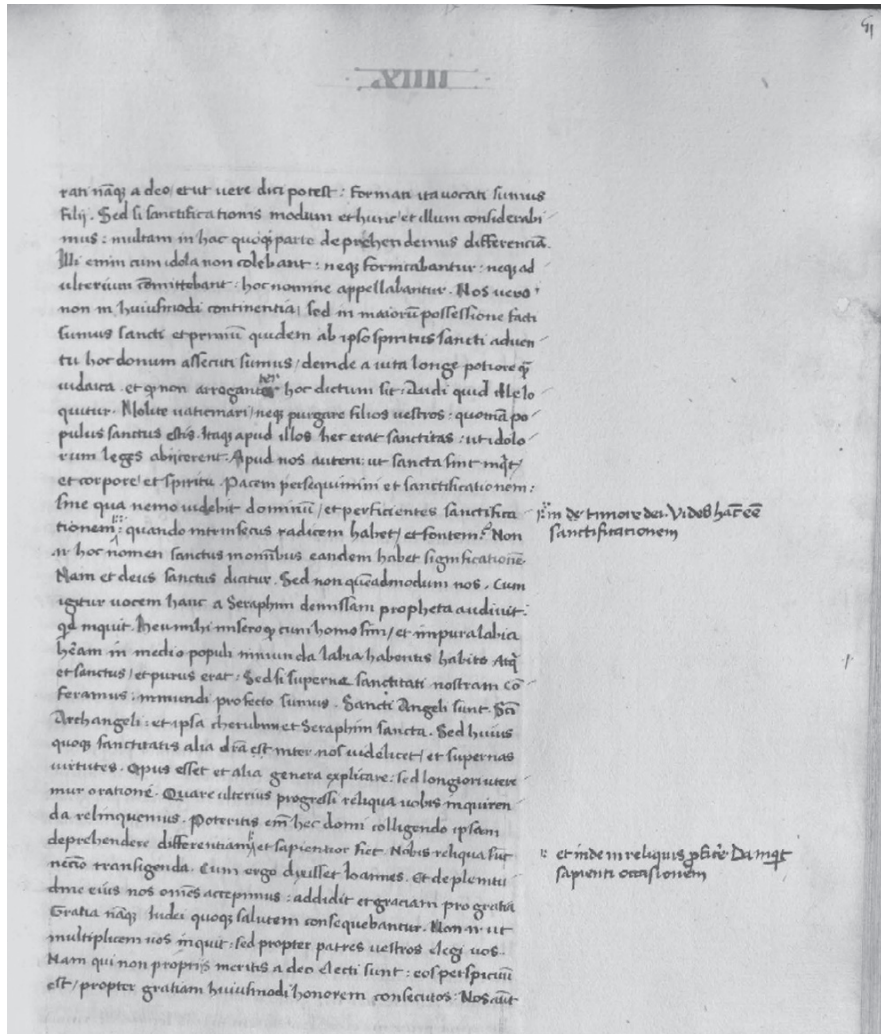 rati nāq; a deo, et ut uere dici potest: Formati ita uocati sumus
filij. Sed si sanctificationis modum et hunc et illum considerabi
mus: multam in hac quoq; parte deprehendemus differenciā.
Illi enim cum idola non colebant: neq; fornicabantur: neq; ad
ulterium cōmittebant: hoc nomine appellabantur. Nos uero
non in huiusmodi continentia, sed in maiorū possessione facti
sumus sancti et primū quidem ab ipso spiritus sancti aduen
tu hoc donum assecuti sumus, deinde a uita longe potiore q̄
iudaica. et q non arroganter hoc dictum sit: Audi quid ille lo
quitur. Nolite uaticinari, neq; purgare filios uestros: quoniā po
pulus sanctus estis. Itaq; apud illos hec erat sanctitas: ut idolo
rum leges abijcerent. Apud nos autem: ut sancta sint inqt,
et corpore, et spiritu. Pacem persequimini et sanctificationem:
sine qua nemo uidebit dominū, et perficientes sanctifica
tionem: quando intrinsecus radicem habet, et fontem. Non
n hoc nomen sanctus in omībus eandem habet significationē.
Nam et deus sanctus dicitur. Sed non quēadmodum nos. Cum
igitur uocem hanc a Seraphim demissam propheta audiuit:
qd inquit. Heu mihi misero q cum homo sim, et impura labia
hēam in medio populi inmunda labia habentis habito Atq
et sanctus, et purus erat: Sed si supernæ sanctitati nostram cō
feramus: inmundi profecto sumus. Sancti Angeli sunt. Scī
Archangeli: et ipsa cherubim et Seraphim sancta. Sed huius
quoq; sanctitatis alia dr̄a est inter nos uidelicet, et supernas
uirtutes. Opus esset et alia genera explicare: sed longiori utere
mur oratione. Quare ulterius progressi reliqua uobis inquiren
da relinquemus. Poteritis em̄ hec domi colligendo ipsam
deprehendere differentiam, et sapientior fiet. Nobis reliqua sūt
necīo transigenda. Cum ergo dixisset Ioannes. Et de plenitu
dine eius nos omēs accepimus: addidit et graciam pro gratia
Gratia nāq; Iudei quoq; salutem consequebantur. Non n ut
multiplicem uos inquit: sed propter patres uestros elegi uos.
Nam qui non proprijs meritis a deo electi sunt: eos perspicuū
est, propter gratiam huiusmodi honorem consecutos: Nos aūt
in dei timore dei. Vides hāc eē
sanctificationem
et inde in reliquis Da inqt
sapienti occasionem